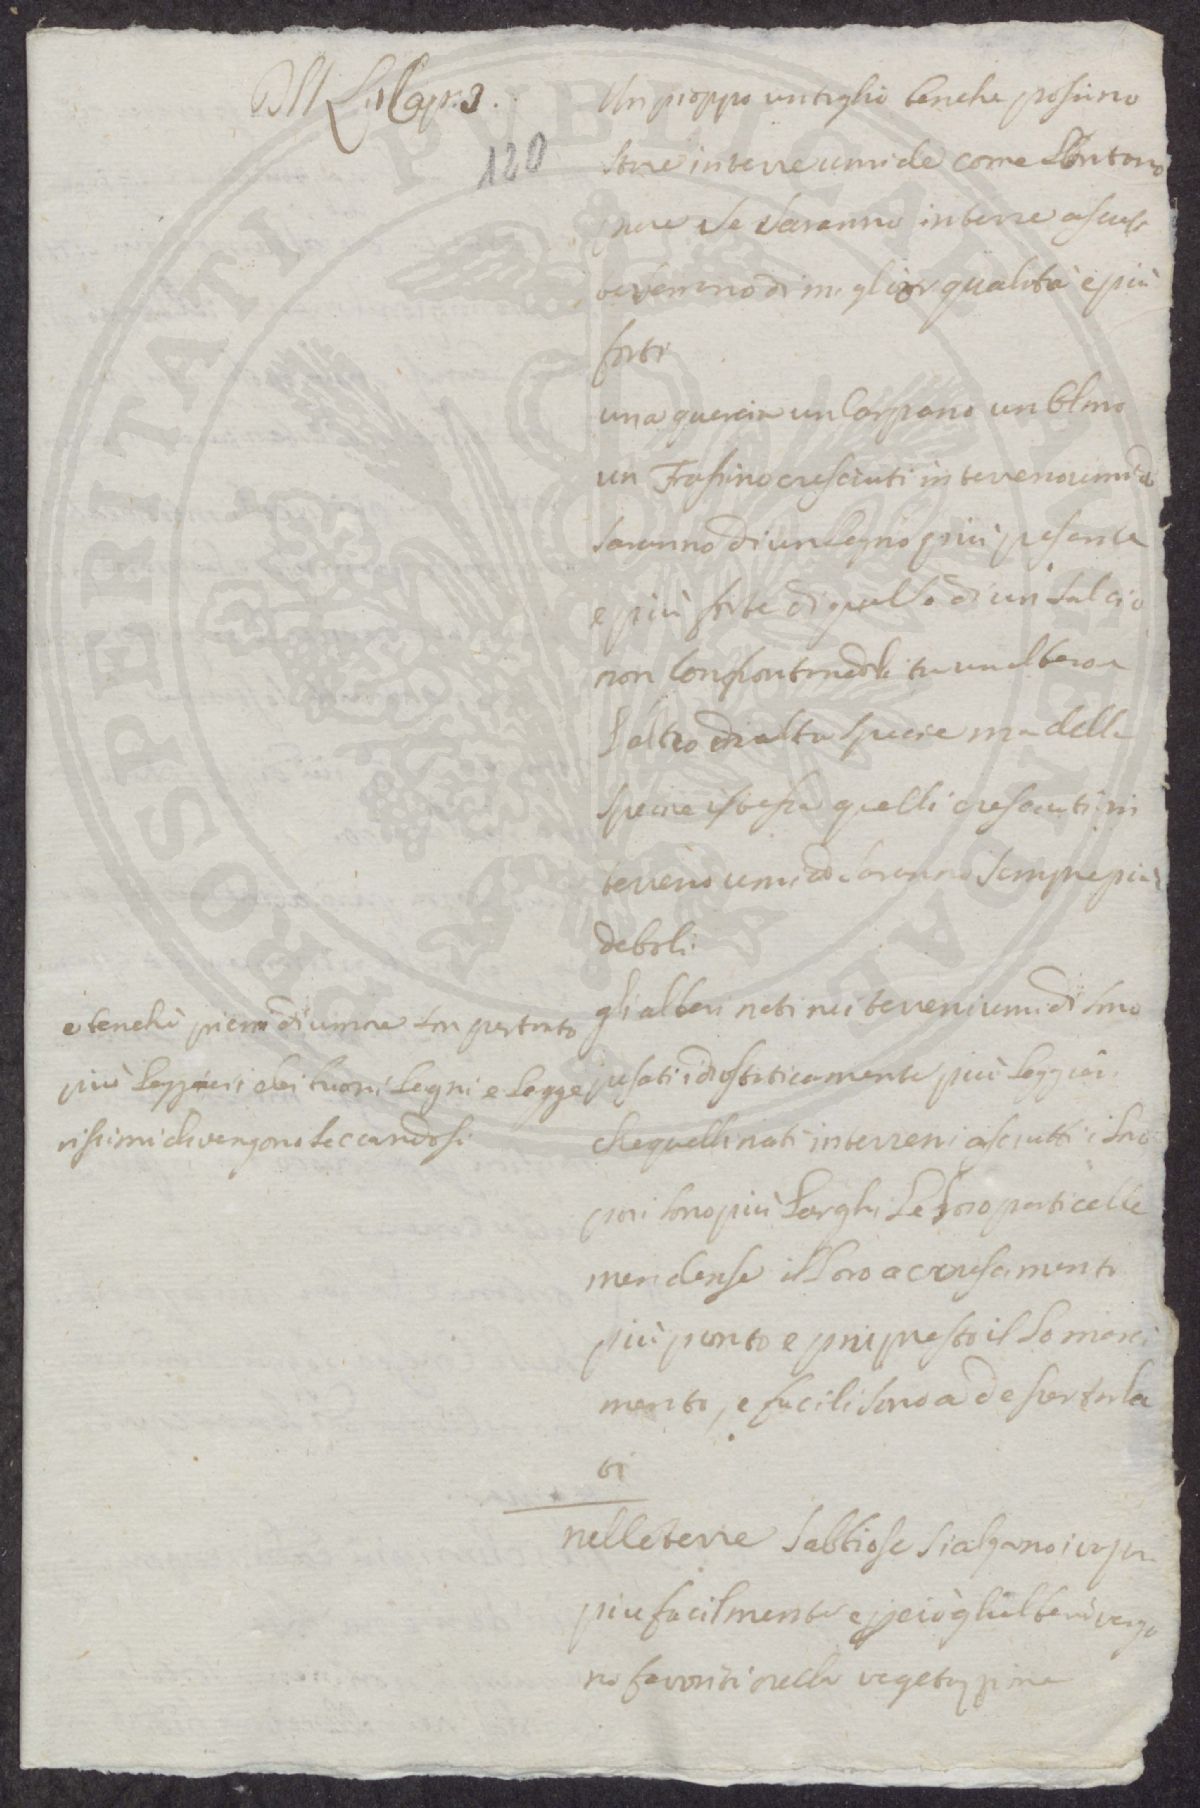 Lib Cap. 3.
120
Un pioppo un tiglio benche possino
stare in terre umide come Lontano
pure se saranno in terre asciute
verranno di miglior qualità e più
forti
una quercia un Carpano un Olmo
un Frassino cresciuti in terreno umido
saranno di un Legno più pesante
e più forte di quello di un Salcio
non Confrontandoli tra un albero e
L'altro di altra specie ma della
specie istessa quelli cresciuti in
terreno umido saranno sempre più
deboli
gli alberi nati nei terreni umidi sono
pesati idrostaticamente più Leggieri
che quelli nati in terreni asciutti i Loro
pori sono più Larghi Le Loro particelle
men dense il Loro accrescimento
più pronto e più presto il Lo marci
mento, e facili sono a
ti
e benchè pieni di umore son pertanto
più Leggieri dei buoni Legni e Legge
rissimi divengono seccandosi
nelle terre sabbiose si alzano i vapori
più facilmente e perciò gli alberi vengo
no favoriti nella vegetazzione
PROSPERITATI PUBLICAE AUGENDAE